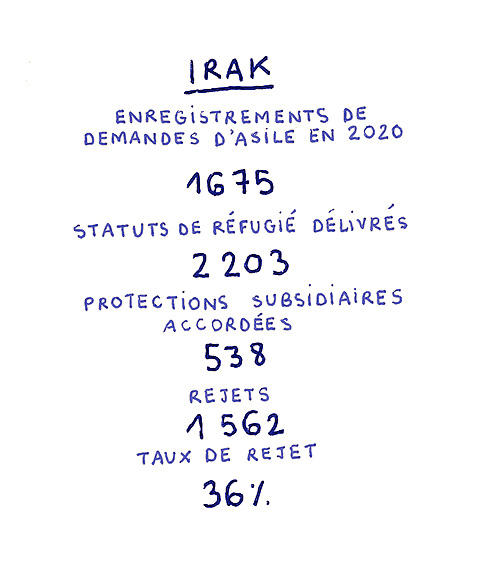 IRAK
ENREGISTREMENTS DE
DEMANDES D'ASILE EN 2020
1675
STATUTS DE RÉFUGIÉ DÉLIVRÉS
2 203
PROTECTIONS SUBSIDIAIRES
ACCORDÉES
538
REJETS
1 562
TAUX DE REJET
36%